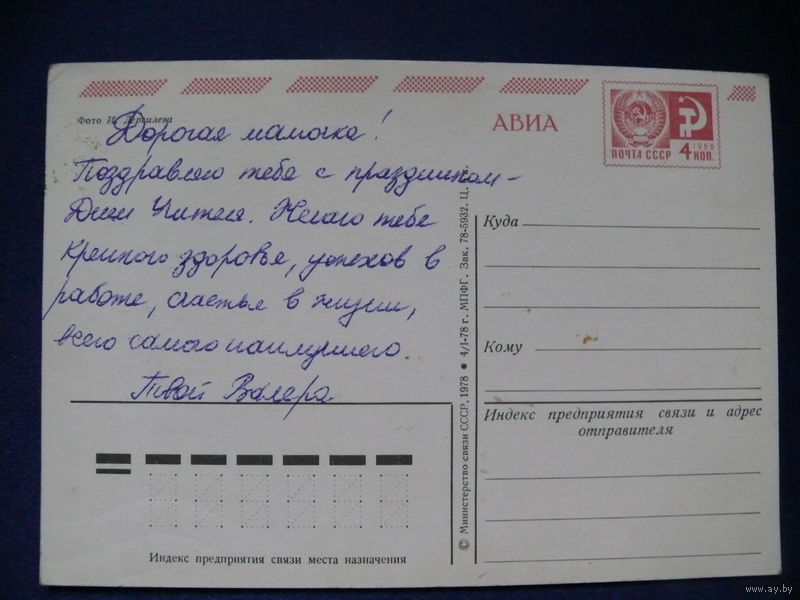 Фото И. Дергилева
АВИА
ПОЧТА СССР
1966
4 КОП.
Дорогая мамочка!
Поздравляю тебя с праздником –
Днем Учителя. Желаю тебе
крепкого здоровья, успехов в
работе, счастья в жизни,
всего самого наилучшего.
Твой Валера
Куда
Кому
Индекс предприятия связи и адрес
отправителя
Индекс предприятия связи места назначения
© Министерство связи СССР, 1978 • 4/I-78 г. МПФГ. Зак. 78-5932. Ц.
www.ay.by